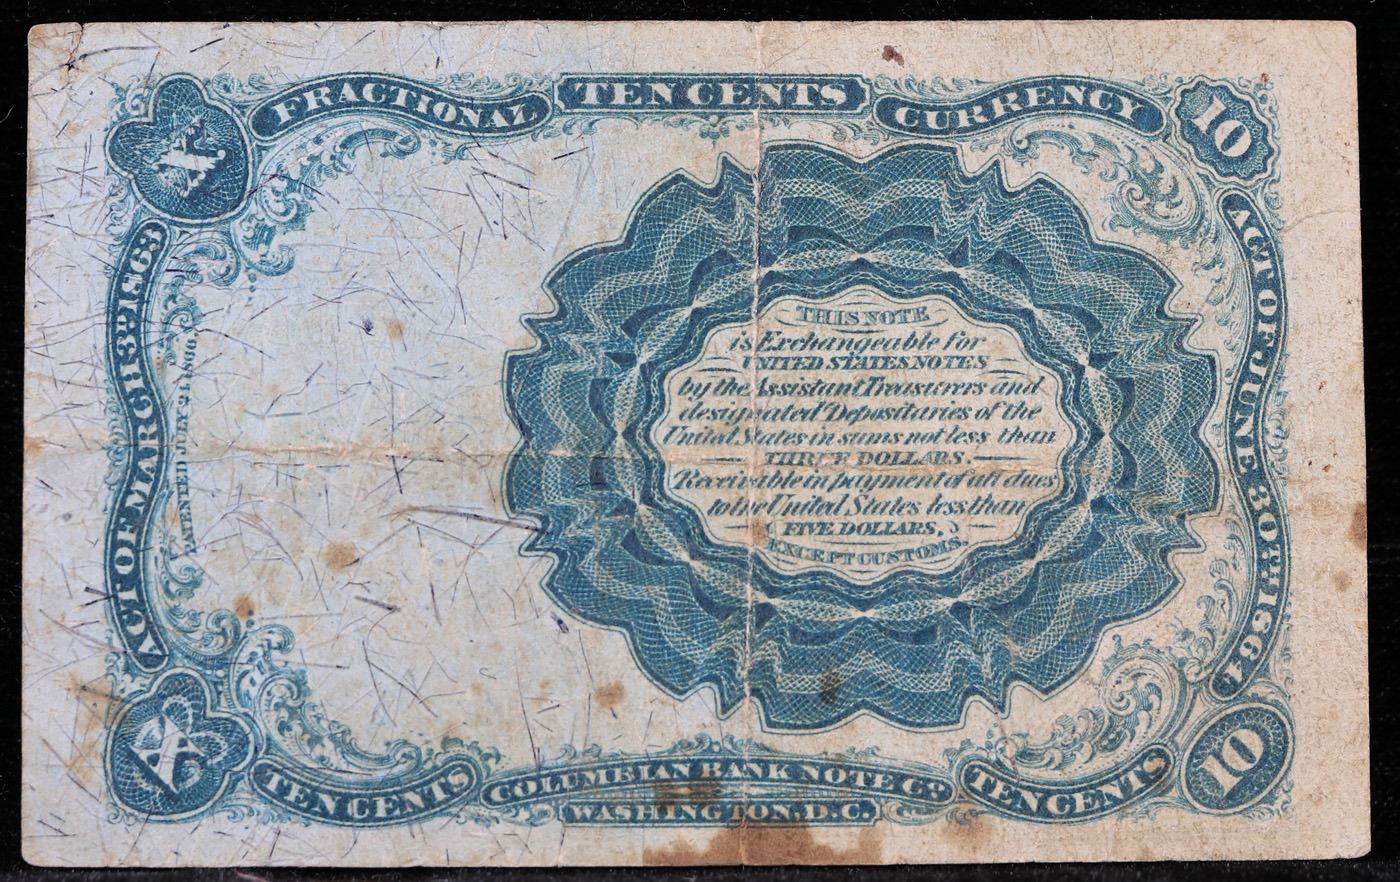 FRACTIONAL TEN CENTS CURRENCY
X
10
ACT OF MARCH 3RD 1863
PATENTED JULY 24, 1866.
THIS NOTE
is Exchangeable for
UNITED STATES NOTES
by the Assistant Treasurers and
designated Depositaries of the
United States in sums not less than
THREE DOLLARS.
Receivable in payment of all dues
to the United States less than
FIVE DOLLARS,
EXCEPT CUSTOMS.
ACT OF JUNE 30TH 1864
X
TEN CENTS
COLUMBIAN BANK NOTE CO.
WASHINGTON, D.C.
TEN CENTS
10